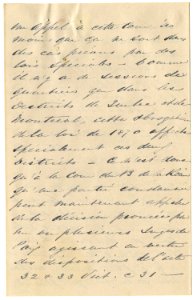 un appel à cette cour les
moins que ce ne soit dans
des cas prévus par des
lois spéciales - Comme
il n'y a de sessions des
quartiers que dans les
districts de Québec et de
Montréal, cette abrogation
de la loi de 1870 affecte
spécialement ces deux
districts - Ce n'est donc
qu'à la Cour du B de la Reine
qu'une partie condamnée
peut maintenant appeler
de la décision prononcée
par un ou plusieurs Juges de
Paix agissant en vertu
des dispositions de l'acte
32 & 33 Vict. c 31 -